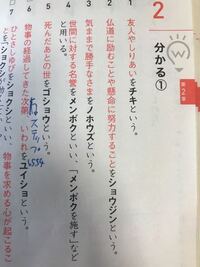 第2章
2
分かる①
1 友人やしりあいをチキという。
2 仏道に励むことや懸命に努力することをショウジンという。
3 気ままで勝手なさまをノホウズという。
4 世間に対する名誉をメンボクといい、「メンボクを施す」など
と用いる。
5 死んだあとの世をゴショウという。
6 物事の経過してきた次第、いわれをユイショという。
7 ひとさしゆびをショクシといい、物事を求める心が起こるこ
とをショクシが